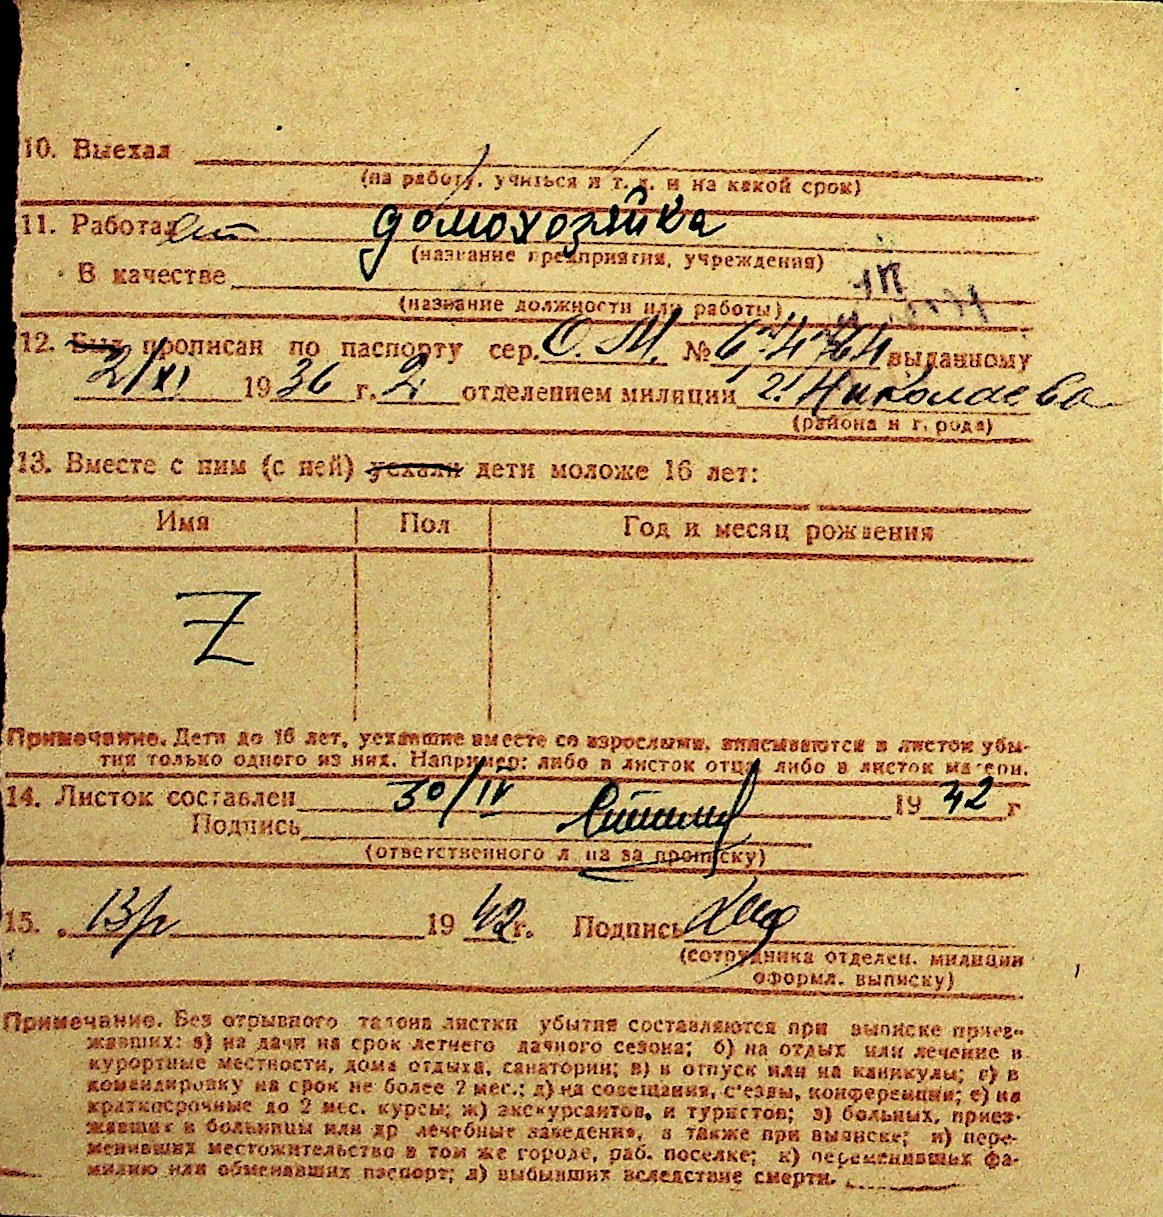 10. Выехал
(на работу, учиться и т. д. и на какой срок)
11. Работает домохозяйка
(название предприятия, учреждения)
В качестве
(название должности или работы)
12. Был прописан по паспорту сер. О. М. № 674764 выданному
2/XI 1936 г. 2. отделением милиции г. Николаева
(района и города)
13. Вместе с ним (с ней) уехали дети моложе 16 лет:
Имя Пол Год и месяц рождения
Z
Примечание. Дети до 16 лет, уехавшие вместе со взрослыми, вписываются в листок убы-
тия только одного из них. Например: либо в листок отца либо в листок матери.
14. Листок составлен 30/IV 1942 г
Подпись
(ответственного лица за прописку)
15. 1942 г. Подпись
(сотрудника отделен. милиции
оформл. выписку)
Примечание. Без отрывного талона листки убытия составляются при выписке приез-
жавших: а) на дачи на срок летнего дачного сезона; б) на отдых или лечение в
курортные местности, дома отдыха, санатории; в) в отпуск или на каникулы; г) в
командировку на срок не более 2 мес.; д) на совещания, с'езды, конференции; е) на
краткосрочные до 2 мес. курсы; ж) экскурсантов, и туристов; з) больных, приез-
жавших в больницы или др лечебные заведения, а также при выписке; и) пере-
менивших местожительство в том же городе, раб. поселке; к) переменивших фа-
милию или обменавших паспорт; л) выбывших вследствие смерти.